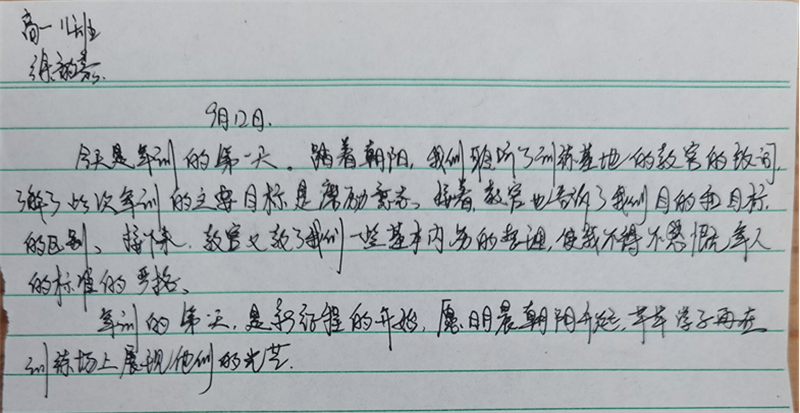 高一11班
徐
9月12日.
今天是军训的第一天。踏着朝阳,我们聆听了训练基地的教官的致词,
了解了此次军训的主要目标是磨励意志。接着,教官也告诉了我们目的和目标
的区别。接下来,教官又教了我们一些基本内务的整理,使我不得不感慨军人
的标准的严格。
军训的第一天,是新征程的开始,愿明晨朝阳升起,莘莘学子再在
训练场上展现他们的光芒.